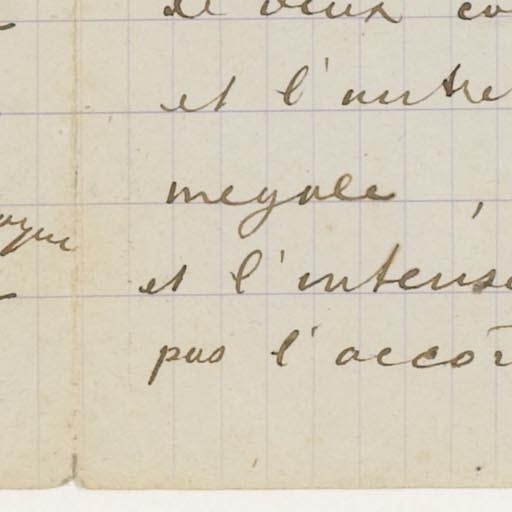 de deux co
et l'autre
megale ,
et l'intense
pas l'accor